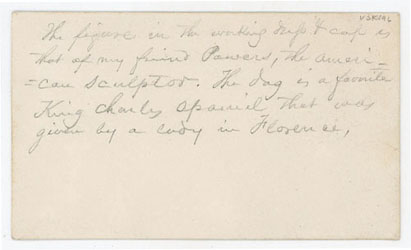 VSKM6
The figure in the working dress & cap is
that of my friend Powers, the ameri-
=can sculptor. The dog is a favorite
King Charles Spaniel that was
given by a lady in Florence,